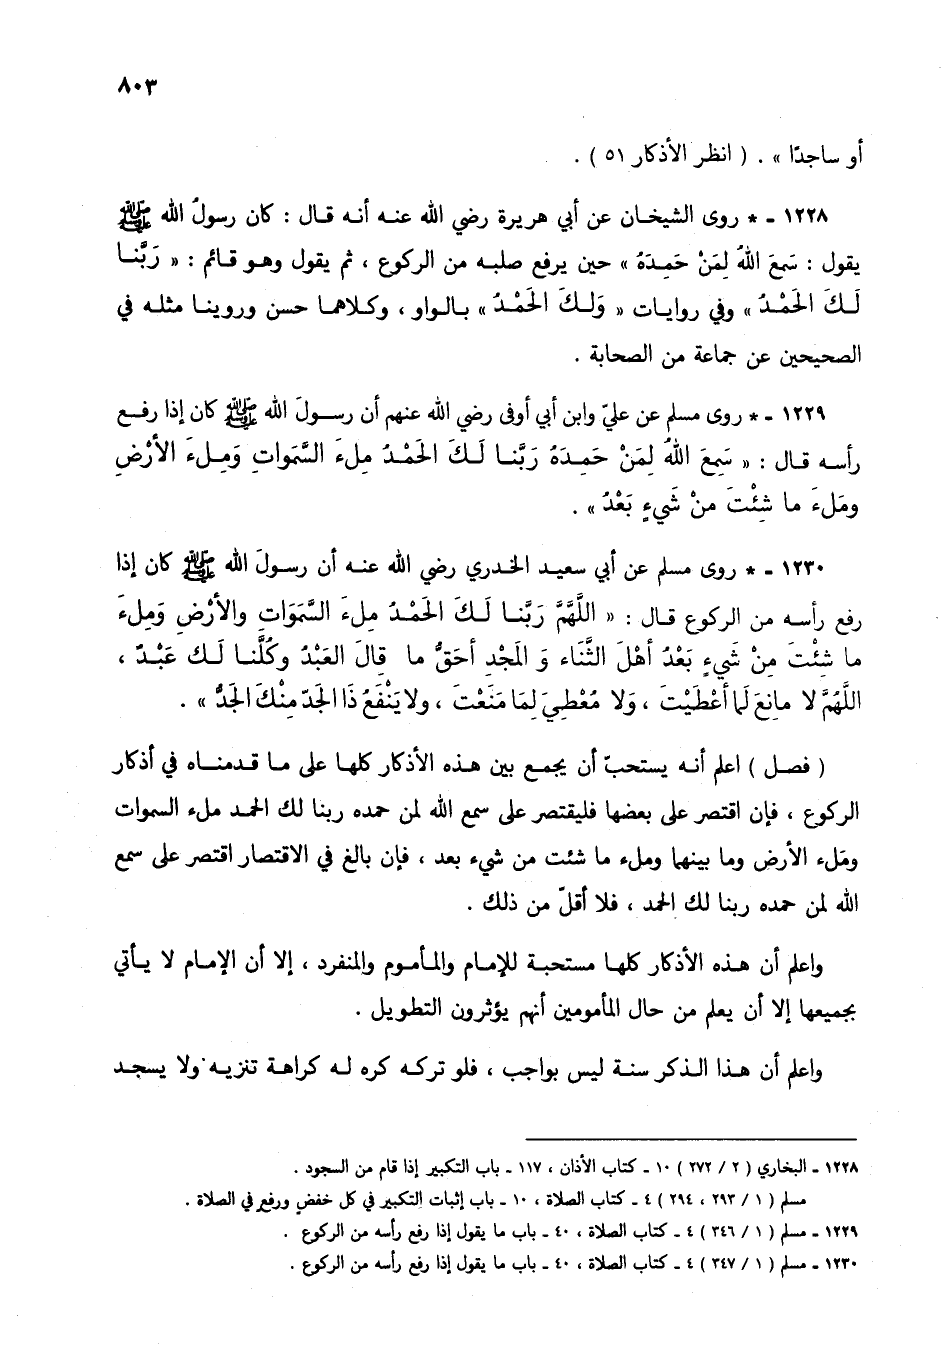 ٨٠٣
أو ساجدًا » . ( انظر الأذكار ٥١ ) .
١٢٢٨ - * روى الشيخان عن أبي هريرة رضي الله عنه أنه قال : كان رسولُ الله ﷺ
يقول : سَمِعَ اللهُ لِمَنْ حَمِدَهُ » حين يرفع صلبه من الركوع ، ثم يقول وهو قائم : « رَبَّنا
لَكَ الحَمْدُ » وفي روايات « وَلَكَ الحَمْدُ » بالواو ، وكلاهما حسن وروينا مثله في
الصحيحين عن جماعة من الصحابة .
١٢٢٩ - * روى مسلم عن عليّ وابن أبي أوفى رضي الله عنهم أن رسولَ الله ﷺ كان إذا رفع
رأسه قال : « سَمِعَ اللهُ لِمَنْ حَمِدَهُ رَبَّنا لَكَ الحَمْدُ مِلءَ السَّمَواتِ وَمِلءَ الأرْضِ
ومَلءَ ما شِئْتَ مِنْ شَيءٍ بَعْدُ » .
١٢٣٠ - * روى مسلم عن أبي سعيد الخدري رضي الله عنه أن رسولَ الله ﷺ كان إذا
رفع رأسه من الركوع قال : « اللَّهُمَّ رَبَّنا لَكَ الحَمْدُ مِلءَ السَّمَوَاتِ والأرْضِ وَمِلءَ
ما شِئْتَ مِنْ شَيءٍ بَعْدُ أهْلَ الثَّنَاء وَ المَجْدِ أحَقُّ ما قالَ العَبْدُ وكُلُّنا لَكَ عَبْدٌ ،
اللَّهُمَّ لا مانِعَ لِمَا أعْطَيْتَ ، وَلا مُعْطِيَ لِمَا مَنَعْتَ ، ولا يَنْفَعُ ذَا الجَدّ مِنْكَ الجَدُّ » .
( فصل ) اعلم أنه يستحبّ أن يجمع بين هذه الأذكار كلها على ما قدمناه في أذكار
الركوع ، فإن اقتصر على بعضها فليقتصر على سمع الله لمن حمده ربنا لك الحمد ملء السموات
ومَلء الأرض وما بينهما وملء ما شئت من شيء بعد ، فإن بالغ في الاقتصار اقتصر على سمع
الله لمن حمده ربنا لك الحمد ، فلا أقلّ من ذلك .
واعلم أن هذه الأذكار كلها مستحبة للإمام والمأموم والمنفرد ، إلا أن الإمام لا يأتي
بجميعها إلا أن يعلم من حال المأمومين أنهم يؤثرون التطويل .
واعلم أن هذا الذكر سنة ليس بواجب ، فلو تركه كره له كراهة تنزيه ولا يسجد
١٢٢٨ - البخاري ( ٢ / ٢٧٢ ) ١٠ - كتاب الأذان ، ١١٧ - باب التكبير إذا قام من السجود .
مسلم ( ١ / ٢٩٣ ، ٢٩٤ ) ٤ - كتاب الصلاة ، ١٠ - باب إثبات التكبير في كل خفضٍ ورفع في الصلاة .
١٢٢٩ - مسلم ( ١ / ٣٤٦ ) ٤ - كتاب الصلاة ، ٤٠ - باب ما يقول إذا رفع رأسه من الركوع .
١٢٣٠ - مسلم ( ١ / ٣٤٧ ) ٤ - كتاب الصلاة ، ٤٠ - باب ما يقول إذا رفع رأسه من الركوع .